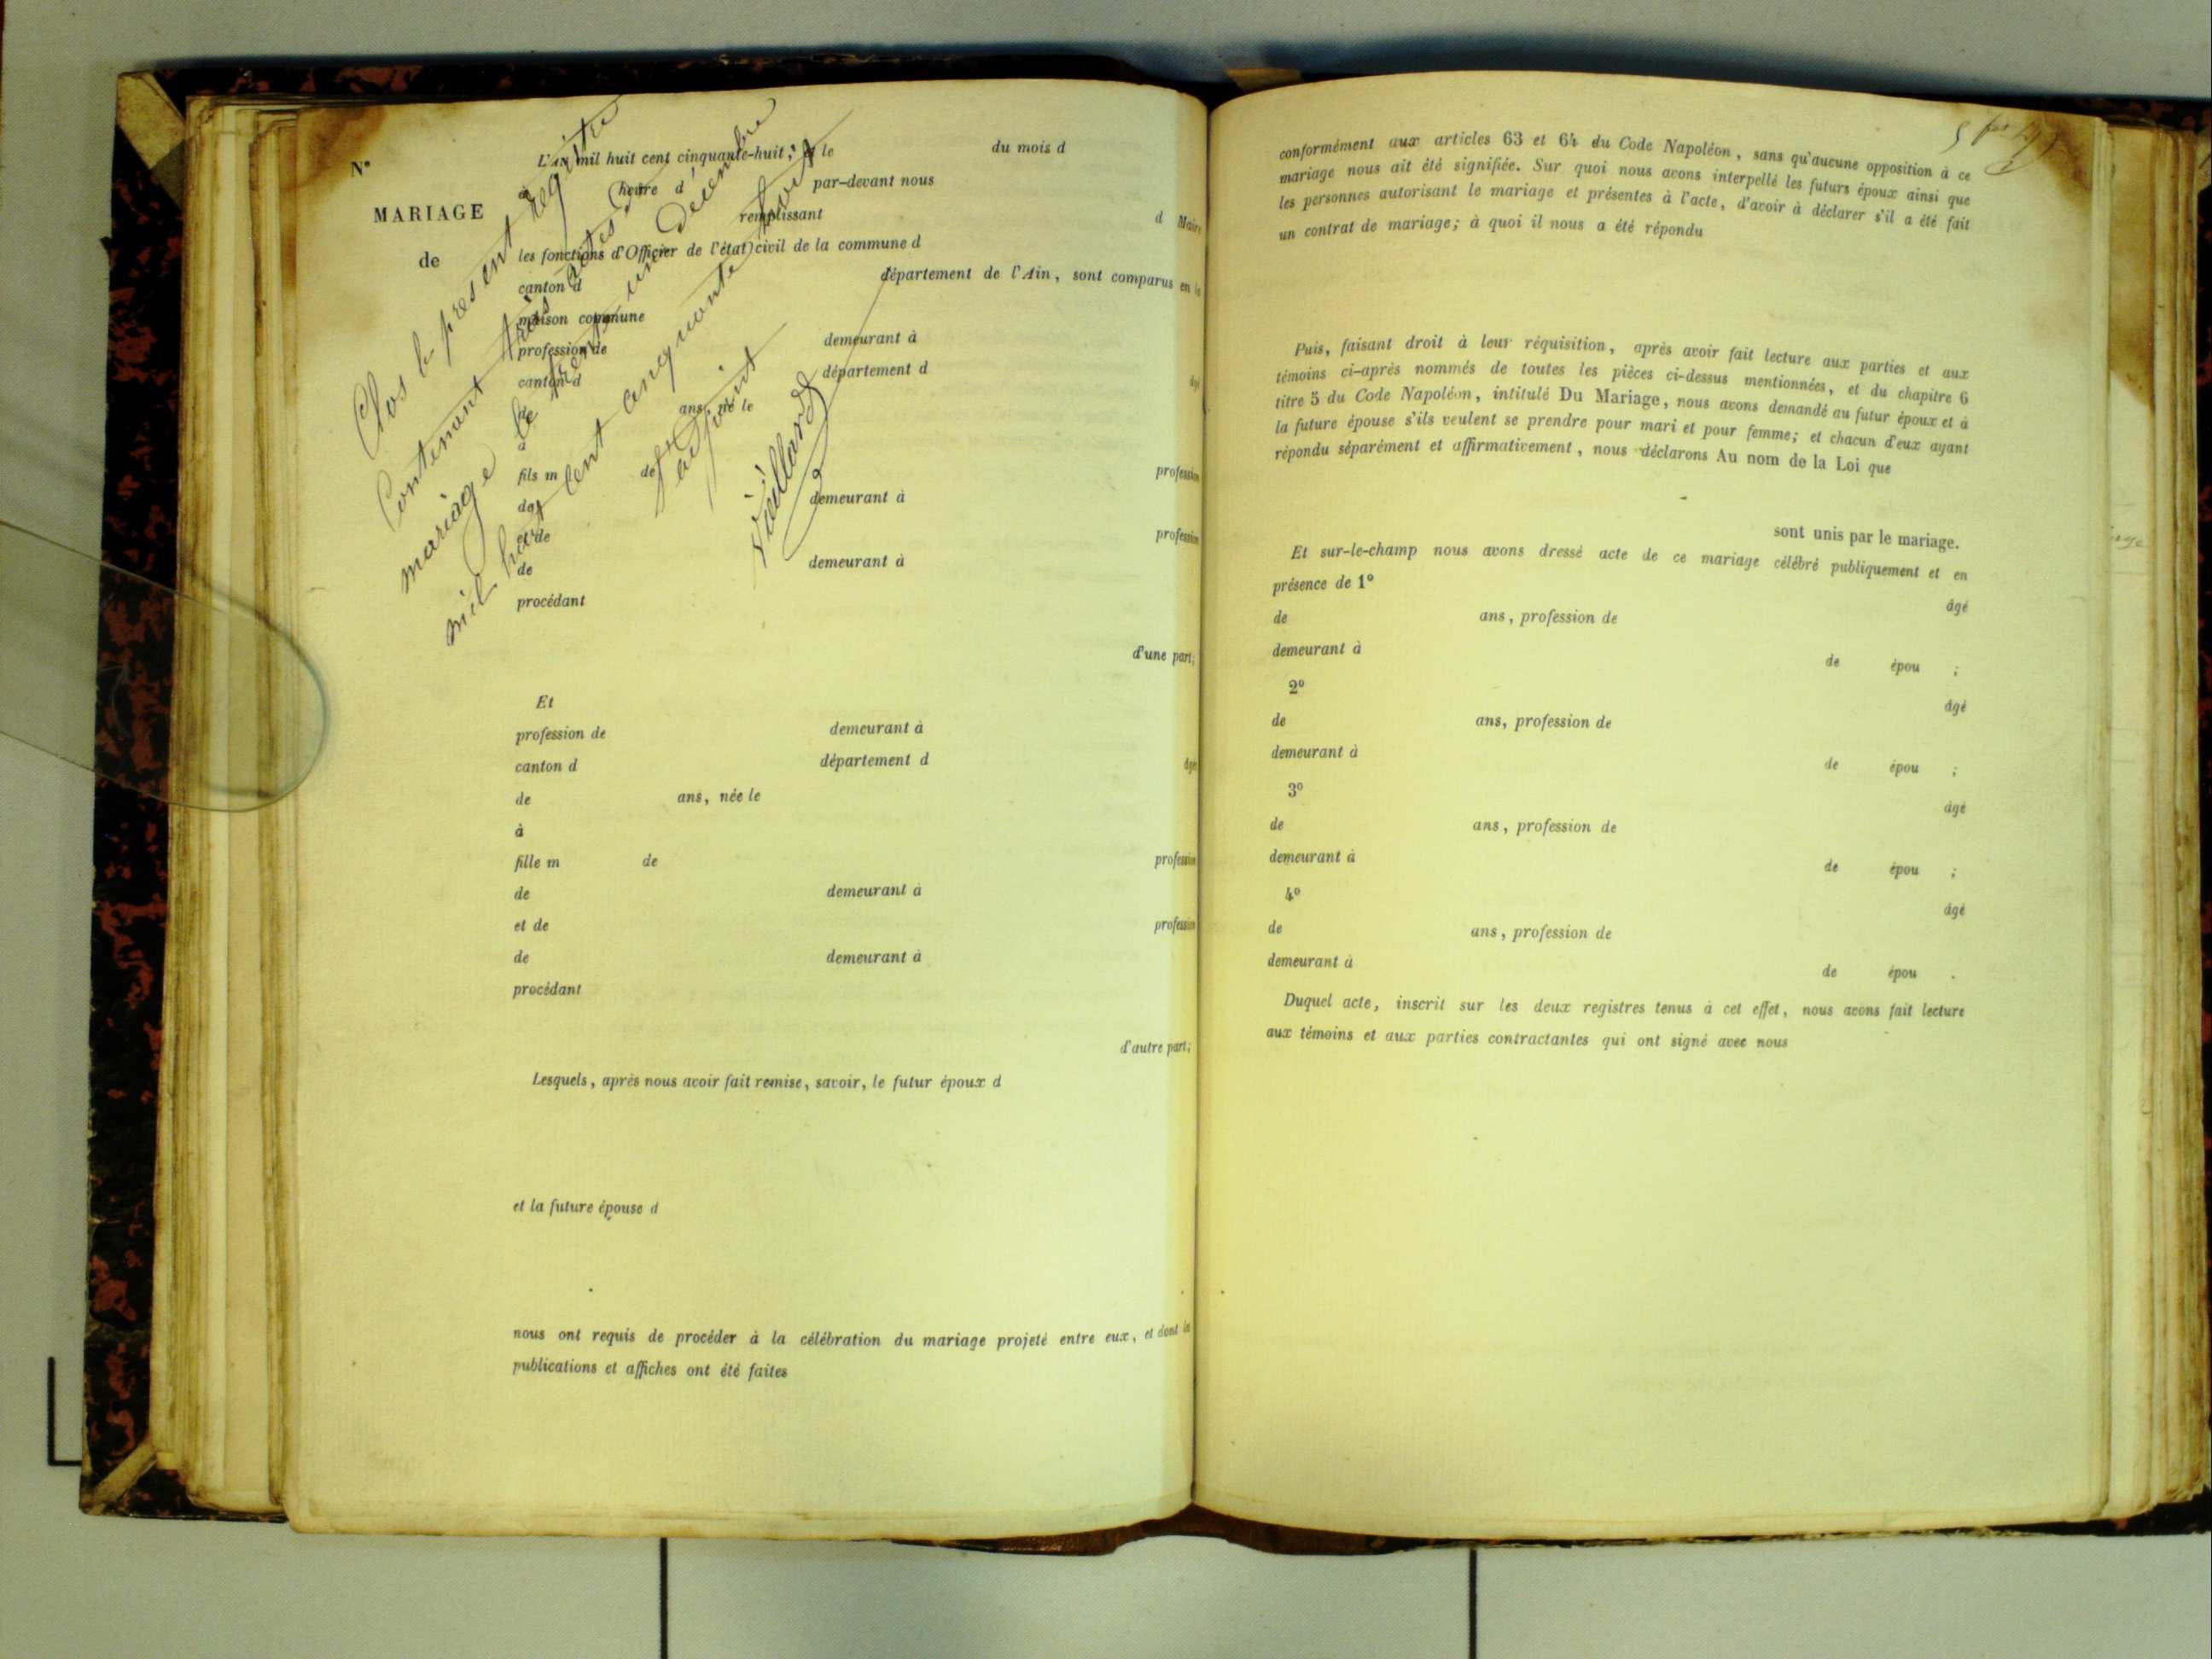 N°
MARIAGE
de
Clos le présent régitre
Contenant trois actes de
mariage le trente un Décembre
mil huit cent cinquante huit
adjoint
Vieillard
L'an mil huit cent cinquante-huit, et le du mois d
à heure d par-devant nous
remplissant d Maire
les fonctions d'Officier de l'état civil de la commune d
canton d département de l'Ain, sont comparus en la
maison commune
profession de demeurant à
canton d département d âgé
de ans, né le
à
fils m de profession
de demeurant à
et de profession
de demeurant à
procédant
d'une part;
Et
profession de demeurant à
canton d département d âgée
de ans, née le
à
fille m de profession
de demeurant à
et de profession
de demeurant à
procédant
d'autre part;
Lesquels, après nous avoir fait remise, savoir, le futur époux d
et la future épouse d
nous ont requis de procéder à la célébration du mariage projeté entre eux, et dont les
publications et affiches ont été faites
conformément aux articles 63 et 64 du Code Napoléon, sans qu'aucune opposition à ce
mariage nous ait été signifiée. Sur quoi nous avons interpellé les futurs époux ainsi que
les personnes autorisant le mariage et présentes à l'acte, d'avoir à déclarer s'il a été fait
un contrat de mariage; à quoi il nous a été répondu
Puis, faisant droit à leur réquisition, après avoir fait lecture aux parties et aux
témoins ci-après nommés de toutes les pièces ci-dessus mentionnées, et du chapitre 6
titre 5 du Code Napoléon, intitulé Du Mariage, nous avons demandé au futur époux et à
la future épouse s'ils veulent se prendre pour mari et pour femme; et chacun d'eux ayant
répondu séparément et affirmativement, nous déclarons Au nom de la Loi que
sont unis par le mariage.
Et sur-le-champ nous avons dressé acte de ce mariage célébré publiquement et en
présence de 1° âgé
de ans, profession de
demeurant à de épou ;
2° âgé
de ans, profession de
demeurant à de épou ;
3° âgé
de ans, profession de
demeurant à de épou ;
4° âgé
de ans, profession de
demeurant à de épou .
Duquel acte, inscrit sur les deux registres tenus à cet effet, nous avons fait lecture
aux témoins et aux parties contractantes qui ont signé avec nous